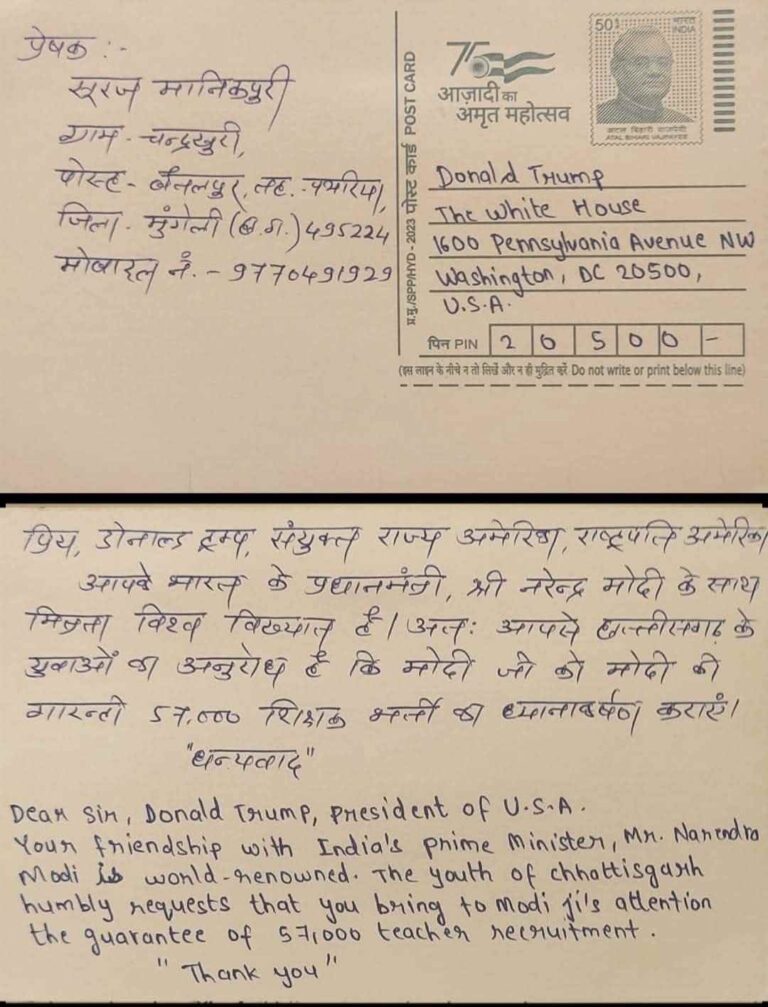 प्रेषक :-
सूरज मानिकपुरी
ग्राम - चन्द्रखुरी,
पोस्ट - बैतलपुर, तह. - पथरिया,
जिला - मुंगेली (छ.ग.) 495224
मोबाइल नं. - 9770491929
75
आज़ादी का
अमृत महोत्सव
501
भारत
INDIA
अटल बिहारी वाजपेयी
ATAL BIHARI VAJPAYEE
प्र.मु./SPP/HYD - 2023 पोस्ट कार्ड POST CARD
Donald Trump
The White House
1600 Pennsylvania Avenue NW
Washington, DC 20500,
U.S.A.
पिन PIN 2 0 5 0 0 -
(इस लाइन के नीचे न तो लिखें और न ही मुद्रित करें Do not write or print below this line)
प्रिय, डोनाल्ड ट्रम्प, संयुक्त राज्य अमेरिका, राष्ट्रपति अमेरिका
आपके भारत के प्रधानमंत्री, श्री नरेन्द्र मोदी के साथ
मित्रता विश्व विख्यात है। अतः आपसे छत्तीसगढ़ के
युवाओं का अनुरोध है कि मोदी जी को मोदी की
गारन्टी 57,000 शिक्षक भर्ती का ध्यानाकर्षण कराएं।
"धन्यवाद"
Dear Sir, Donald Trump, president of U.S.A.
Your friendship with India's prime Minister, Mr. Narendra
Modi is world-renowned. The youth of chhattisgarh
humbly requests that you bring to Modi ji's attention
the guarantee of 57,000 teacher recruitment.
"Thank you"